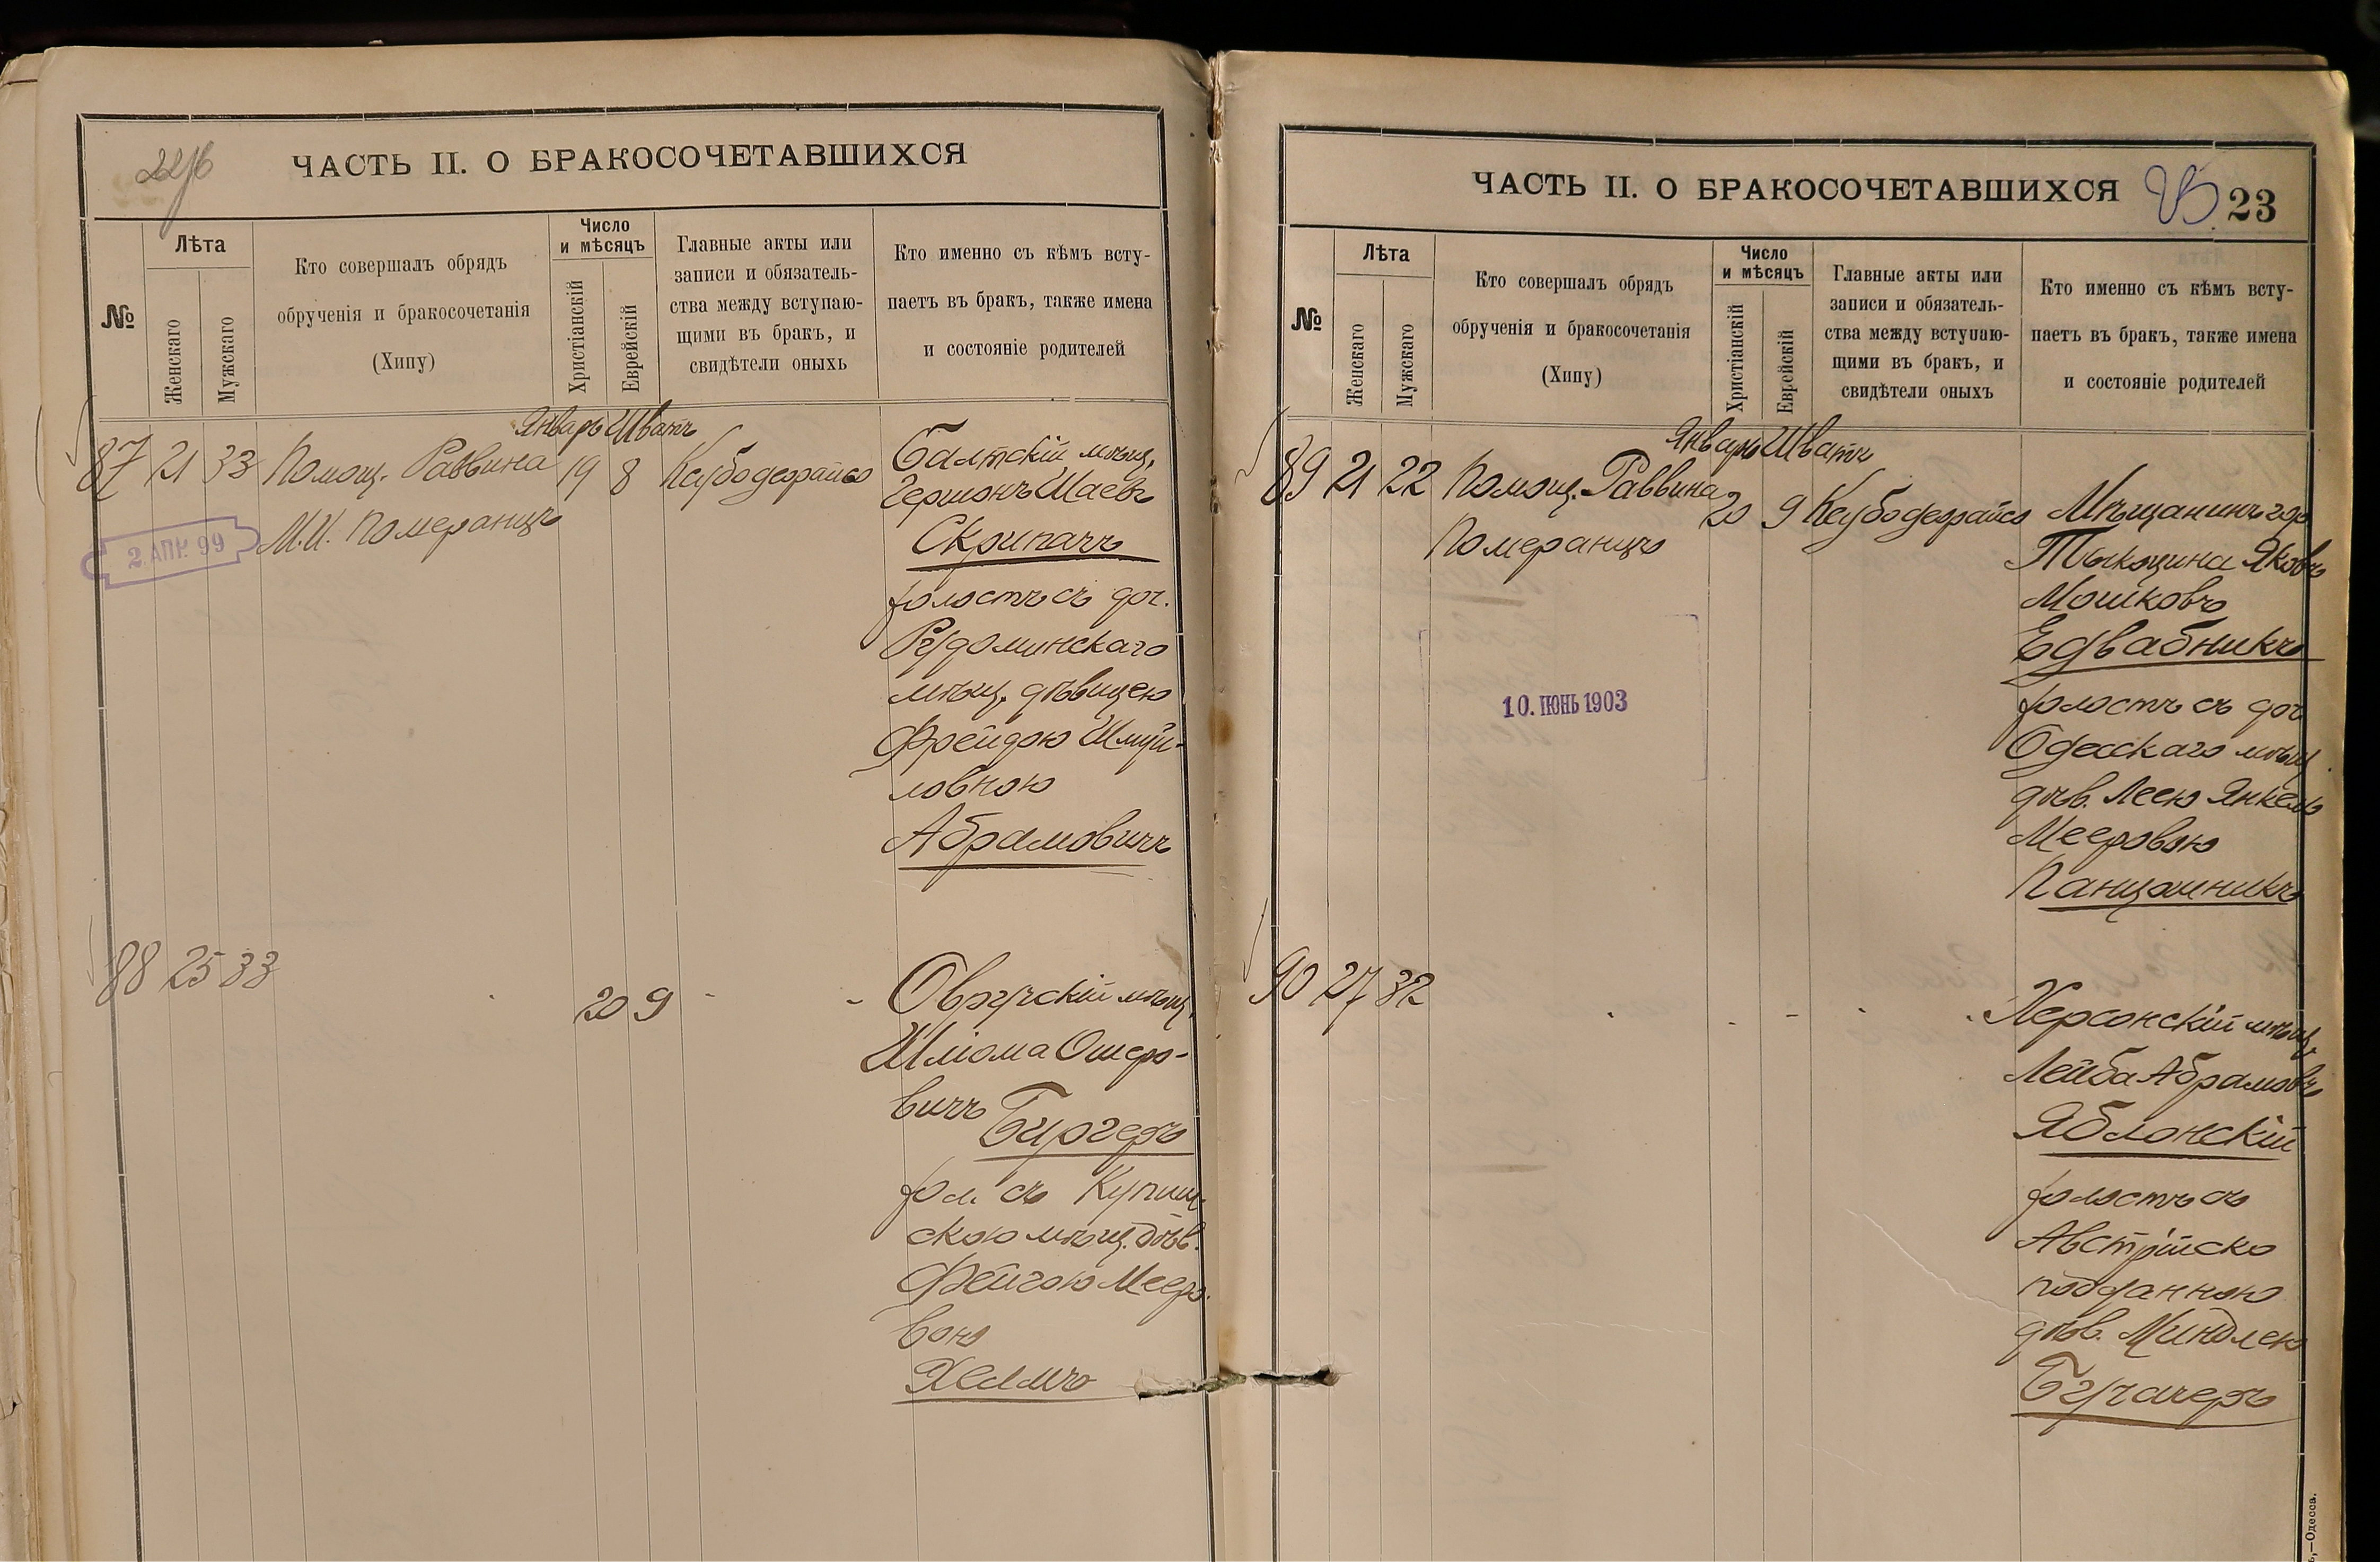 ЧАСТЬ II. О БРАКОСОЧЕТАВШИХСЯ
№
Лѣта
Женскаго
Мужскаго
Кто совершалъ обрядъ
обрученія и бракосочетанія
(Хипу)
Число
и мѣсяцъ
Христіанскій
Еврейскій
Главные акты или
записи и обязатель-
ства между вступаю-
щими въ бракъ, и
свидѣтели оныхъ
Кто именно съ кѣмъ всту-
паетъ въ бракъ, также имена
и состояніе родителей
Январь Шватъ
87 21 33 Помощ. Раввина 19 8 Кеубодерайсо
М. И. Померанцъ
2. АПР. 99
Балтскій мѣщ.
Гершонъ Шаевъ
Скрипачъ
холостъ съ доч.
Рудоминскаго
мѣщ. дѣвицею
Фрейдою Шмуй-
ловною
Абрамовичъ
88 25 33 20 9 - -
Овручскій мѣщ.
Шліома Ошеро-
вичъ Бургеръ
хол. съ Купиш-
скою мѣщ. дѣв.
Фейгою Мееро-
вою
Хелмъ
ЧАСТЬ II. О БРАКОСОЧЕТАВШИХСЯ
23
№
Лѣта
Женскаго
Мужскаго
Кто совершалъ обрядъ
обрученія и бракосочетанія
(Хипу)
Число
и мѣсяцъ
Христіанскій
Еврейскій
Главные акты или
записи и обязатель-
ства между вступаю-
щими въ бракъ, и
свидѣтели оныхъ
Кто именно съ кѣмъ всту-
паетъ въ бракъ, также имена
и состояніе родителей
Январь Шватъ
89 21 22 Помощ. Раввина 20 9 Кеубодерайсо
Померанцъ
10. ІЮНЬ 1903
Мѣщанинъ гор.
Тыкоцина Яковъ
Мошковъ
Едвабникъ
холостъ съ доч
Одесскаго мѣщ.
дѣв. Леею Янкель
Мееровою
Панцошникъ
90 27 32 - - -
Херсонскій мѣщ.
Лейба Абрамовъ
Яблонскій
холостъ съ
Австрійско
подданною
дѣв. Миндлею